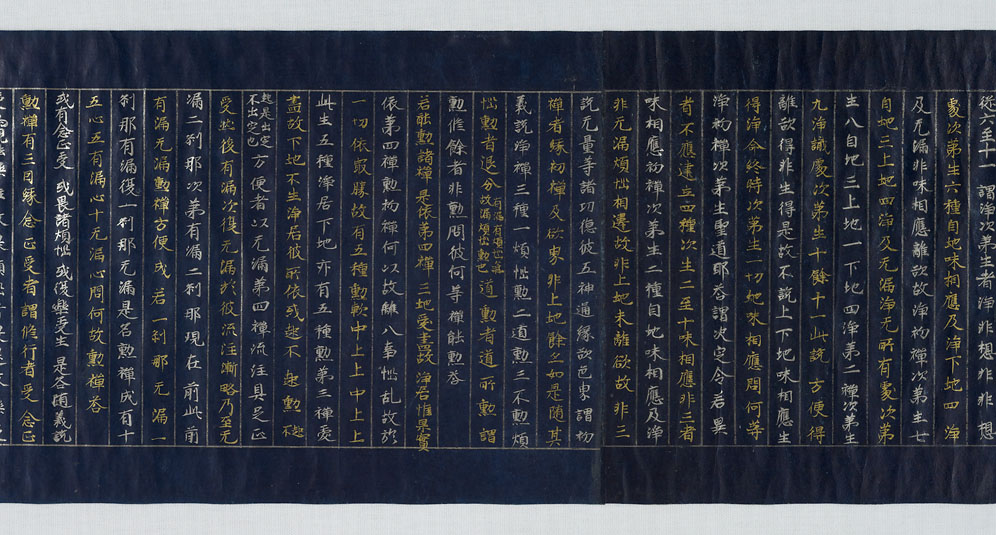 從六至十一謂淨次第生者淨非想非想
處次第生六種自地味相應及淨下地四淨
及无漏非味相應離欲故淨初禪次第生七
自地三上地四淨及无漏淨无所有處次第
生八自地三上地一下地四淨第二禪次第生
九淨識處次第生十餘十一此說方便得
離欲得非生得是故不說上下地味相應生
得淨命終時次第生一切地味相應問何等
淨初禪次第生聖道耶答謂決定令若異
者不應建立四種次生二至十味相應非三者
味相應初禪次第生二種自地味相應及淨
非无漏煩惱相違故非上地未離欲故非三
說无量等諸功德彼五神通緣欲色界謂初
禪者緣初禪及欲界非上地餘亦如是隨其
義說淨禪三種一煩惱勳二道勳三不勳煩
惱勳者退分道勳者道所勳謂
勳脩餘者非勳問彼何等禪能勳答
若能勳諸禪是依第四禪三地愛盡故淨居惟果實
依第四禪勳初禪何以故離八事惱亂故於
一切依㝡勝故有五種勳軟中上上中上上
此生五種淨居下地亦有五種勳第三禪愛
盡故下地不生淨居彼所依殘起不起勳
起是出定不出定也方便者以无漏第四禪流注具足正
受起後有漏次復无漏於彼流注漸略乃至无
漏二剎那次第有漏二剎那現在前此前
有漏无漏勳禪方便成若一剎那无漏一
剎那有漏後一剎那无漏是名勳禪成有十
五心五有漏心十无漏心問何故勳禪答
或有念正受或畏諸煩惱或後樂受生是答隨義說
勳禪有三因緣念正受者謂脩行者受念正